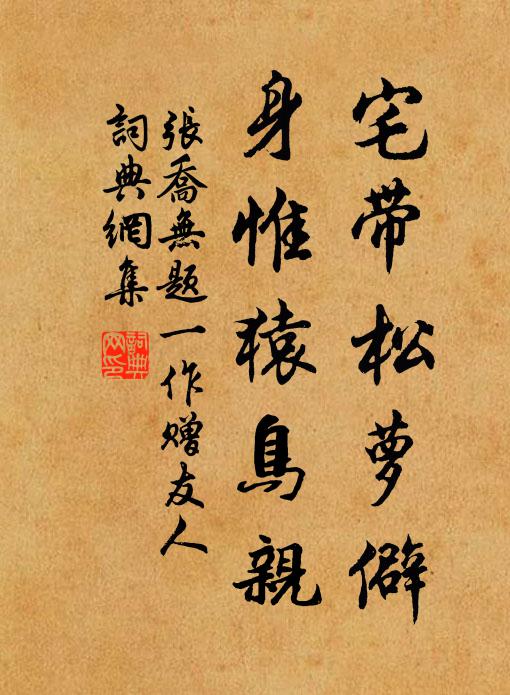 宅帶松萝僻
身惟猿鳥親
張喬無題一作贈友人
詞典網集
詞典
网印